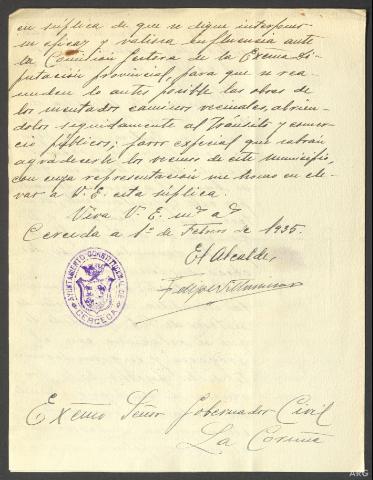 en súplica de que se digne interponer
su eficaz y valiosa influencia ante
la Comisión Gestora de la Excma. Di-
putación provincial, para que se rea-
nuden lo antes posible las obras de
los mentados caminos vecinales, abrien-
dolos seguidamente al tránsito y comer-
cio públicos; favor especial que sabrán
agradecerle los vecinos de este municipio,
con cuya representación me honro en ele-
var a V. E. esta súplica.
Viva V. E. ms. as.
Cerceda a 1º de Febrero de 1935.
El Alcalde,
Felipe
AYUNTAMIENTO CONSTITUCIONAL DE
CERCEDA
Excmo Señor Gobernador Civil
La Coruña
ARG